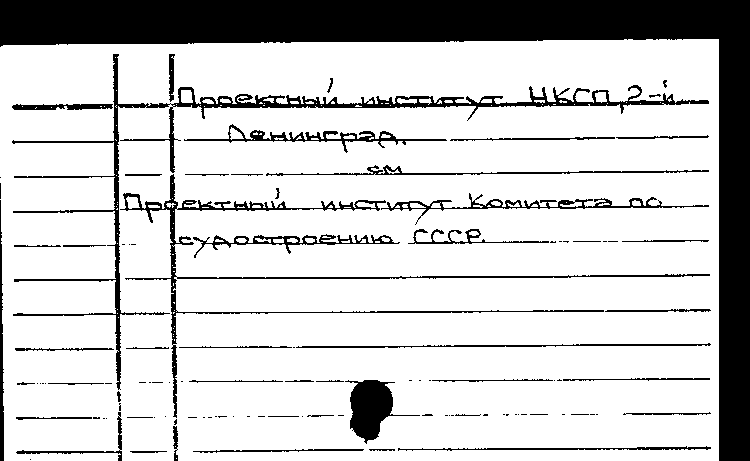 Проектный институт НКСП, 2-й
Ленинград.
см
Проектный институт Комитета по
судостроению СССР.